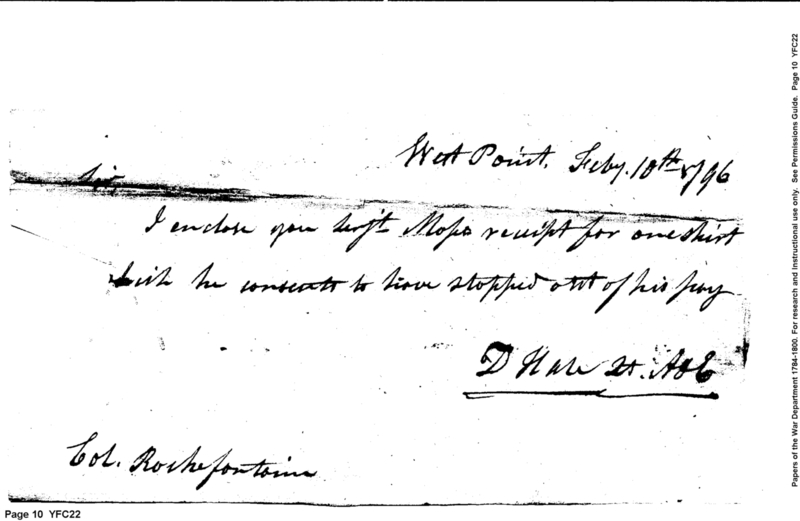 West Point. Feby. 10th 1796
Sir,
I enclose you Serjt. Moses receipt for one shirt
which he consents to have stopped out of his pay
D Hale Lt. A&E
Col. Rochefontaine
Page 10 YFC22
Papers of the War Department 1784-1800. For research and Instructional use only. See Permissions Guide. Page 10 YFC22